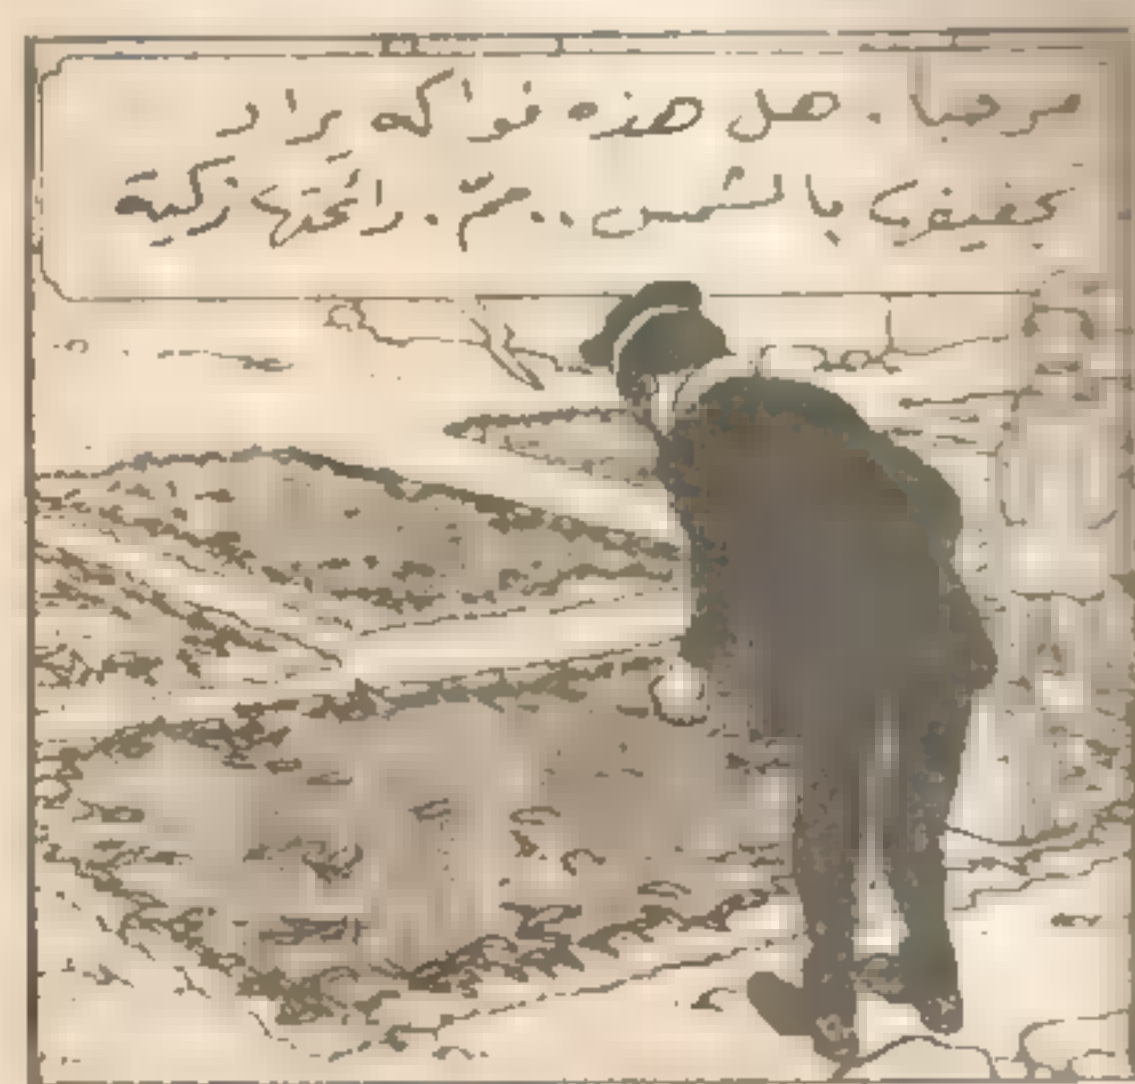 مرحبا . هل هذه فواكه يراد
تجفيفها بالشمس .. مّ . رائحتها زكية